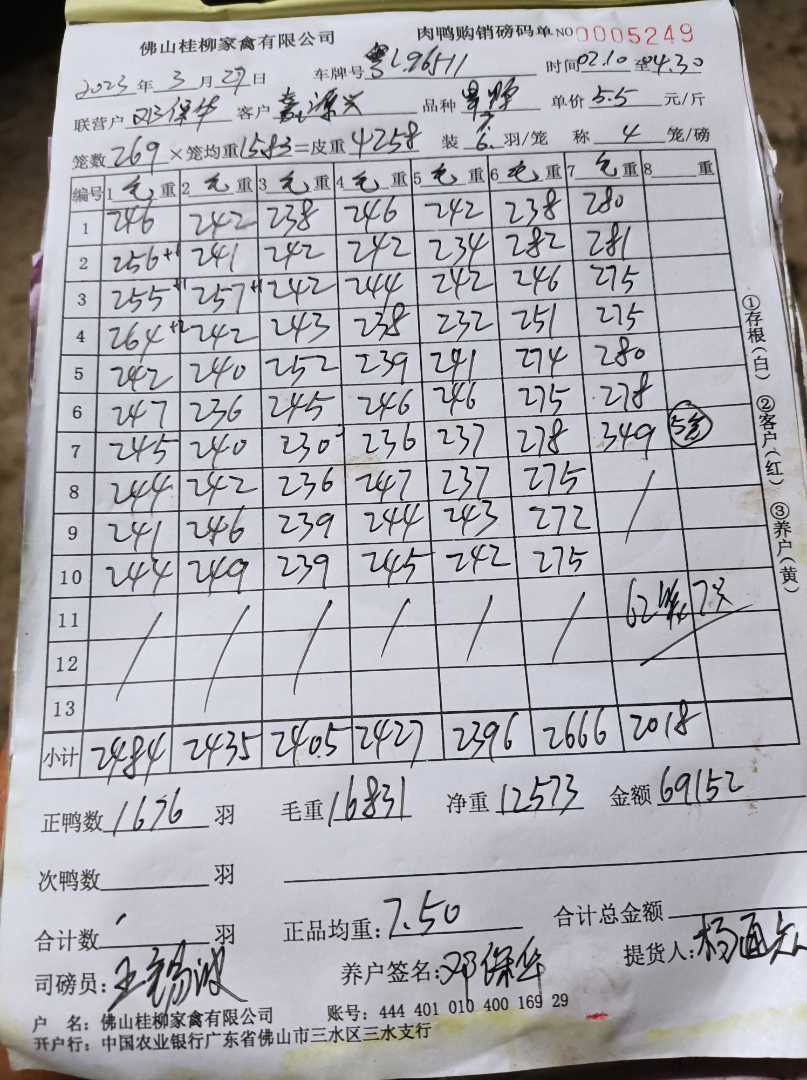 佛山桂柳家禽有限公司 肉鸭购销磅码单 NO 0005249
2023 年 3 月 27 日 车牌号 粤L96511 时间 02.10 至 04.30
联营户 邓保华 客户 源兴 品种 单价 5.5 元/斤
笼数 269 ×笼均重 15.83 =皮重 4258 装 6 羽/笼 称 4 笼/磅
编号 1 毛 重 2 毛 重 3 毛 重 4 毛 重 5 毛 重 6 毛 重 7 毛 重 8 重
1 246 242 238 246 242 238 280
2 256+1 241 242 242 234 282 281
3 255+1 257+1 242 244 242 246 275
4 264+2 242 243 238 232 251 275
5 242 240 252 239 241 274 280
6 247 236 245 246 246 275 278
7 245 240 230 236 237 278 349 5笼
8 244 242 236 247 237 275 /
9 241 246 239 244 243 272
10 244 249 239 245 242 275
11 / / / / / / 62
12
13
小计 2484 2435 2405 2427 2396 2666 2018
正鸭数 1676 羽 毛重 16831 净重 12573 金额 69152
次鸭数 羽
合计数 羽 正品均重: 7.50 合计总金额
司磅员: 养户签名: 邓保华 提货人: 杨
户 名: 佛山桂柳家禽有限公司 账号: 444 401 010 400 169 29
开户行: 中国农业银行广东省佛山市三水区三水支行
①存根(白) ②客户(红) ③养户(黄)